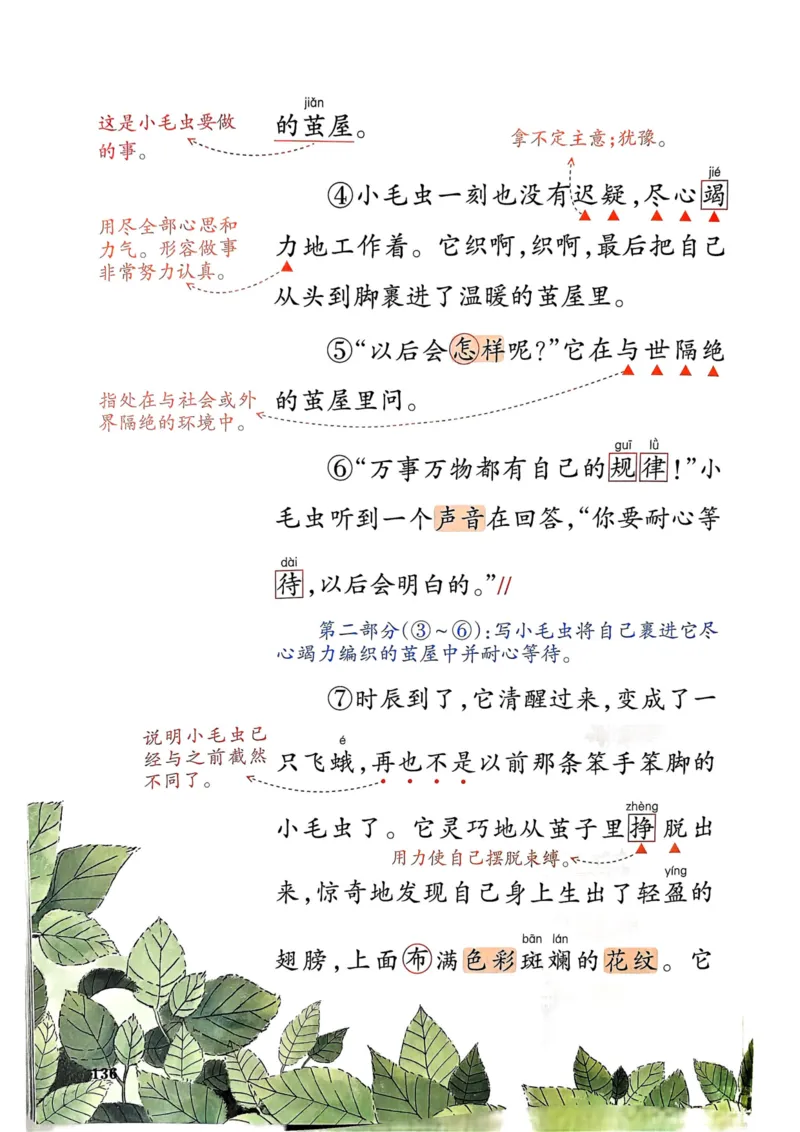 jiǎn
这是小毛虫要做
的事。
的茧屋。
拿不定主意;犹豫。
jié
④小毛虫一刻也没有迟疑,尽心竭
用尽全部心思和
力气。形容做事
非常努力认真。
力地工作着。它织啊,织啊,最后把自己
从头到脚裹进了温暖的茧屋里。
⑤“以后会怎样呢?”它在与世隔绝
指处在与社会或外
界隔绝的环境中。
的茧屋里问。
guī lǜ
⑥“万事万物都有自己的规律!”小
毛虫听到一个声音在回答,“你要耐心等
dài
待,以后会明白的。”//
第二部分(③~⑥):写小毛虫将自己裹进它尽
心竭力编织的茧屋中并耐心等待。
⑦时辰到了,它清醒过来,变成了一
说明小毛虫已
经与之前截然
不同了。
é
只飞蛾,再也不是以前那条笨手笨脚的
zhèng
小毛虫了。它灵巧地从茧子里挣脱出
用力使自己摆脱束缚。
yíng
来,惊奇地发现自己身上生出了轻盈的
bān lán
翅膀,上面布满色彩斑斓的花纹。它
136